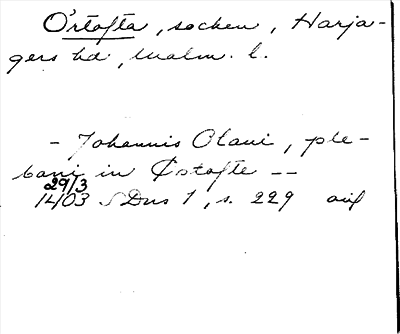 Örtofta, socken, Harja-
gers hd, Malm. l.
- Johannis Olaui, ple-
bani in Østofte --
29/3
1403 SDns 1, s. 229 avs